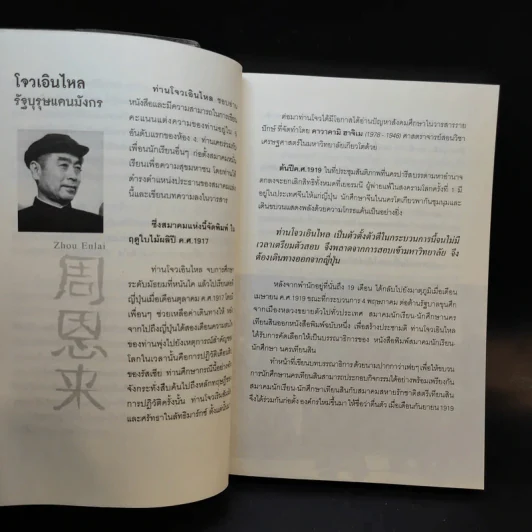 โจวเอินไหล
รัฐบุรุษแดนมังกร
Zhou Enlai
周恩来
ท่านโจวเอินไหล ชอบอ่าน
หนังสือและมีความสามารถในการเขียน
คะแนนแต่งความของท่านอยู่ใน
อันดับแรกของห้อง
เพื่อนนักเรียนอื่นๆ ก่อตั้งสมาคมนักเรียน
เรียนเพื่อความสุขมหาชน โดยท่านได้
ดำรงตำแหน่งประธานของสมาคม
นี้และเขียนบทความลงในวารสาร
ซึ่งสมาคมแห่งนี้จัดพิมพ์ ใน
ฤดูใบไม้ผลิปี ค.ศ.1917
ท่านโจวเอินไหล จบการศึกษา
ระดับมัธยมที่หนันไค แล้วไปเรียนต่อ
ญี่ปุ่นเมื่อเดือนตุลาคม ค.ศ.1917 โดยมี
เพื่อนๆ ช่วยเหลือค่าเดินทางให้ หลัง
จากไปถึงญี่ปุ่นได้สองเดือนความสนใจ
ของท่านพุ่งไปยังเหตุการณ์สำคัญของ
โลกในเวลานั้นคือการปฏิวัติเดือน
ของรัสเซีย ท่านศึกษากรณีนี้อย่าง
จังกระทั่งสืบค้นไปถึงหลักทฤษฎี
การปฏิวัติครั้งนั้น ท่านโจวเริ่มสนใจ
และศรัทธาในลัทธิมาร์กซ์ ตั้งแต่นั้น
ต่อมาท่านโจวได้มีโอกาสได้อ่านปัญหาสังคมศึกษาในวารสารราย
ปักษ์ ที่จัดทำโดย คาวาคามิ ฮาจิเมะ (1879 - 1946) ศาสตราจารย์สอนวิชา
เศรษฐศาสตร์ในมหาวิทยาลัยเกียวโตด้วย
ต้นปีค.ศ.1919 ในที่ประชุมสันติภาพที่นครปารีสบรรดามหาอำนาจ
ตกลงจะยกเลิกสิทธิทั้งหมดที่เยอรมนี ผู้พ่ายแพ้ในสงครามโลกครั้งที่ 1 มี
อยู่ในประเทศจีนให้แก่ญี่ปุ่น นักศึกษาจีนในนครโตเกียวพากันชุมนุมและ
เดินขบวนแสดงพลังด้วยความโกรธแค้นเป็นอย่างยิ่ง
ท่านโจวเอินไหล เป็นตัวตั้งตัวตีในกระบวนการนี้จนไม่มี
เวลาเตรียมตัวสอบ จึงพลาดจากการสอบเข้ามหาวิทยาลัย จึง
ต้องเดินทางออกจากญี่ปุ่น
หลังจากพำนักอยู่ที่นั่นถึง 19 เดือน ได้กลับไปยังมาตุภูมิเมื่อเดือน
เมษายน ค.ศ.1919 ขณะที่กระบวนการ 4 พฤษภาคม ต่อต้านรัฐบาลขุนศึก
จากเมืองหลวงขยายตัวไปทั่วประเทศ สมาคมนักเรียน-นักศึกษานคร
เทียนสินออกหนังสือพิมพ์ฉบับหนึ่ง เพื่อสร้างประชามติ ท่านโจวเอินไหล
ได้รับการคัดเลือกให้เป็นบรรณาธิการของ หนังสือพิมพ์สมาคมนักเรียน-
นักศึกษา นครเทียนสิน
ทำหน้าที่เขียนบทบรรณาธิการ ด้วยนามปากกาว่าเฟยๆ เพื่อให้ขบวน
การนักศึกษานครเทียนสินสามารถประกอบกิจกรรมได้อย่างพร้อมเพรียงกัน
สมาคมนักเรียน-นักศึกษาเทียนสินกับสมาคมสหายรักชาติสตรีเทียนสิน
จึงได้ร่วมกันก่อตั้ง องค์กรใหม่ขึ้นมา ให้ชื่อว่าตื่นตัว เมื่อเดือนกันยายน 1919